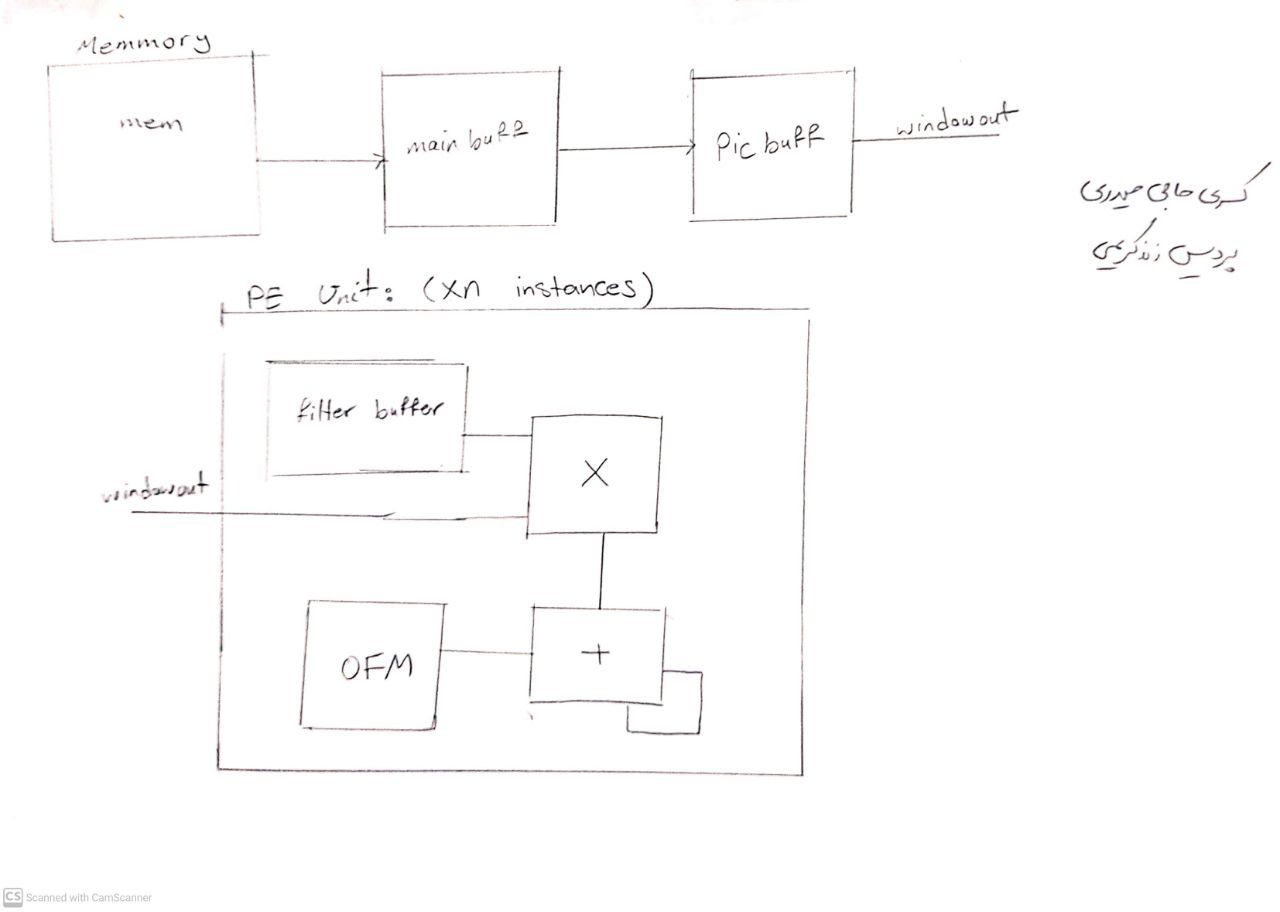 Memmory
mem
main buff
Pic buff
windowout
کسری حاجی حیدری
پردیس زندکریمی
PE Unit: (Xn instances)
filter buffer
X
windowout
OFM
+
CS Scanned with CamScanner